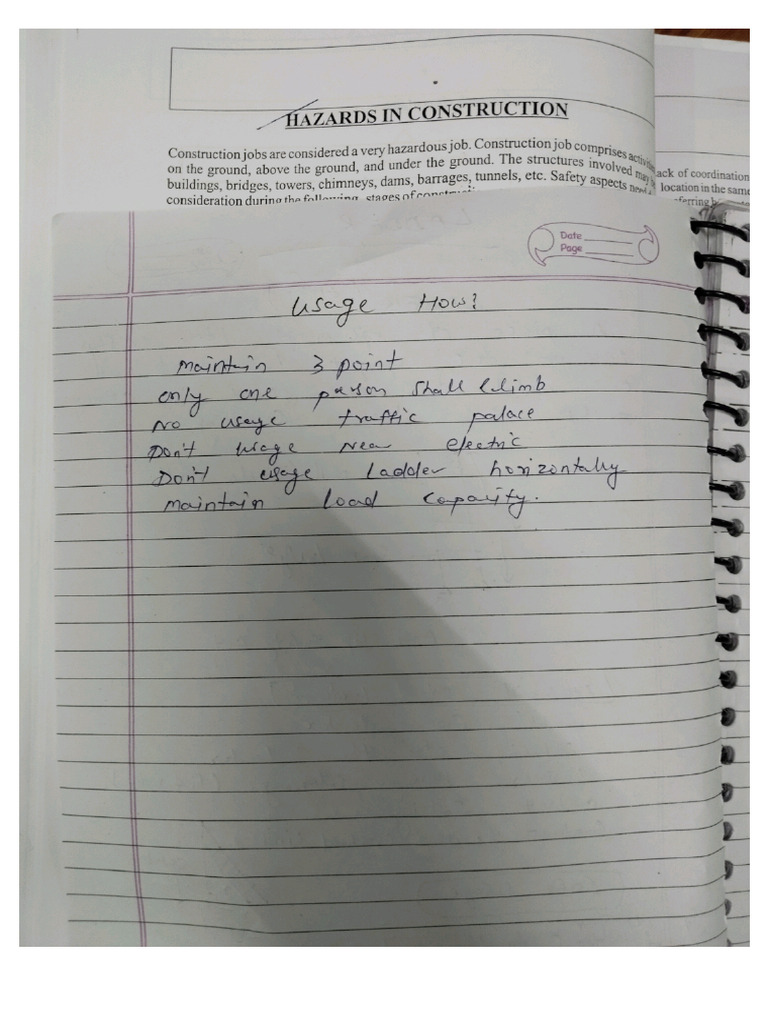 HAZARDS IN CONSTRUCTION
Construction jobs are considered a very hazardous job. Construction job comprises
on the ground, above the ground, and under the ground. The structures involved may
buildings, bridges, towers, chimneys, dams, barrages, tunnels, etc. Safety aspects
consideration during the following stages of
ack of coordination
location in the same
Date
Page
Usage How?
Maintain 3 point
only one person shall climb
No usage traffic palace
Don't usage near electric
Don't usage Ladder horizontally
Maintain load capacity.